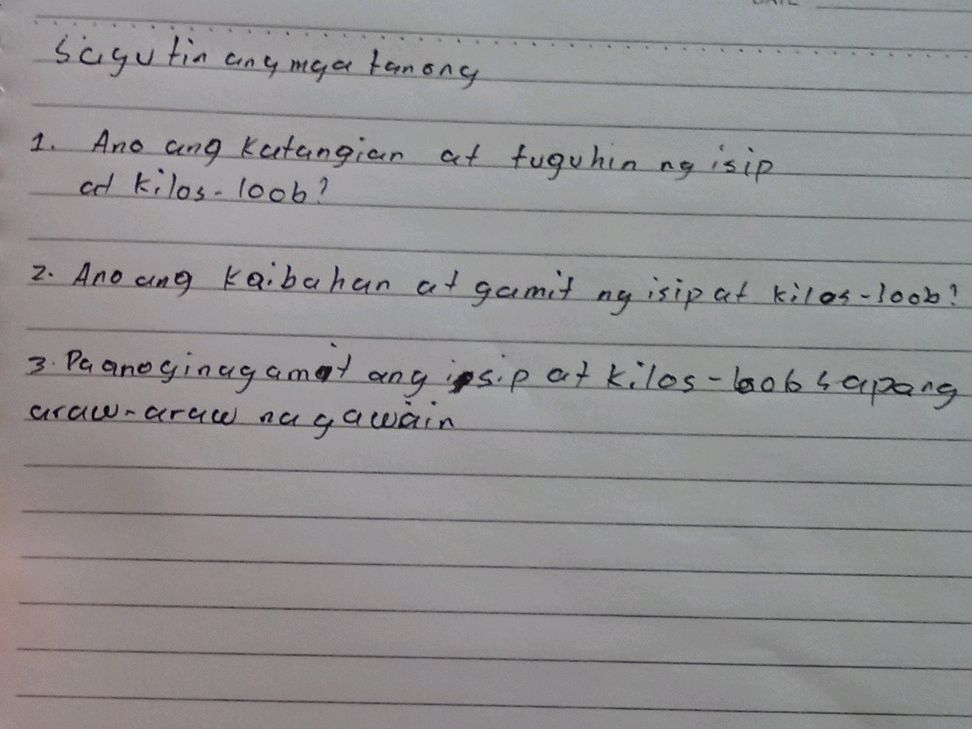 Sagutin ang mga tanong
1. Ano ang katangian at tuguhin ng isip
at kilos-loob?
2. Ano ang kaibahan at gamit ng isip at kilos-loob?
3. Paano ginagamit ang isip at kilos-loob sa pang
araw-araw na gawain